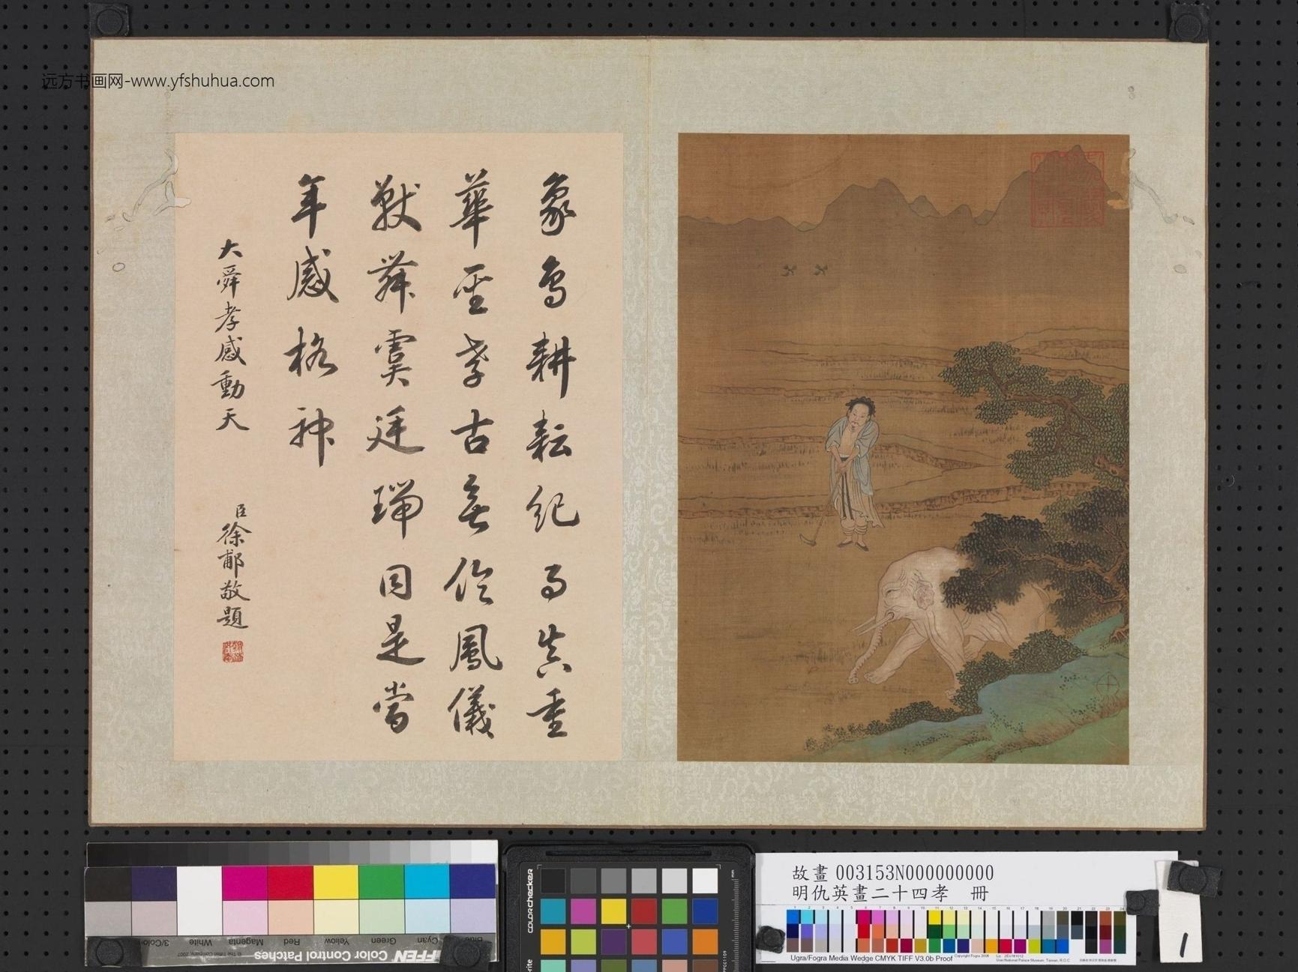 远方书画网-www.yfshuhua.com
象鳥耕耘紀事真重
華至孝古無倫鳳儀
獸舞虞廷瑞因是當
年感格神
大舜孝感動天
臣徐郙敬題
故畫 003153N000000000
明仇英畫二十四孝 冊
Ugra/Fogra Media Wedge CMYK TIFF V3.0b Proof
colorchecker
Color Control Patches
3/Color
White
Magenta
Red
Yellow
Green
Cyan
1